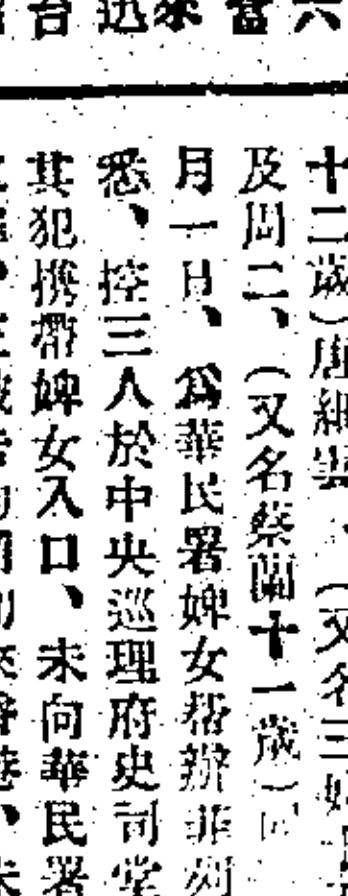 六當來迅台
十二歲)唐細雲、(又名三好
及周二、(又名蔡蘭十一歲)同
月一日、爲華民署婢女帮辦菲列
悉、控三人於中央巡理府史司堂
其犯攜帶婢女入口、未向華民署